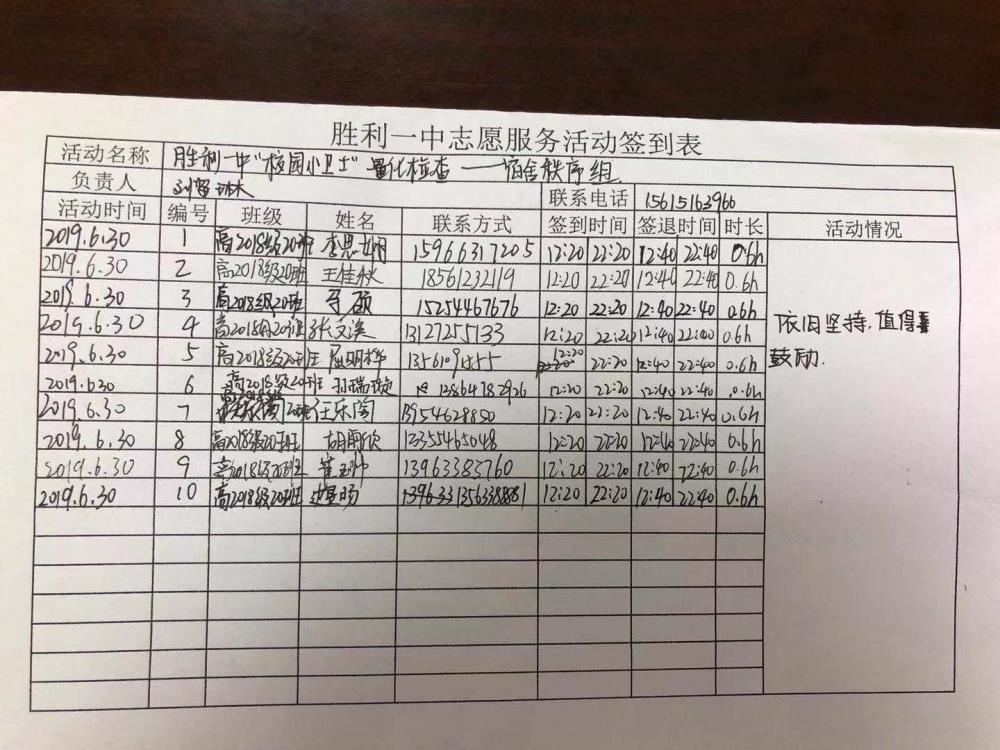 胜利一中志愿服务活动签到表
活动名称 胜利一中“校园小卫士”量化检查——宿舍秩序组
负责人 联系电话 15615163966
活动时间 编号 班级 姓名 联系方式 签到时间 签退时间 时长 活动情况
2019.6.30 1 高2018级20班 李思娴 15966317205 12:20 22:20 12:40 22:40 0.6h
2019.6.30 2 高2018级20班 王佳秋 18561232119 12:20 22:20 12:40 22:40 0.6h
2019.6.30 3 高2018级20班 15254467676 12:20 22:20 12:40 22:40 0.6h
2019.6.30 4 高2018级20班 张文溪 13127255133 12:20 22:20 12:40 22:40 0.6h
2019.6.30 5 高2018级20班 12:20 22:20 12:40 22:40 0.6h
2019.6.30 6 高2018级20班 13864782926 12:20 22:20 12:40 22:40 0.6h
2019.6.30 7 20班 任乐陶 13954628850 12:20 22:20 12:40 22:40 0.6h
2019.6.30 8 高2018级20班 胡雨欣 13355465048 12:20 22:20 12:40 22:40 0.6h
2019.6.30 9 高2018级20班 13963383760 12:20 22:20 12:40 22:40 0.6h
2019.6.30 10 高2018级20班 12:20 22:20 12:40 22:40 0.6h
依旧坚持,值得
鼓励.